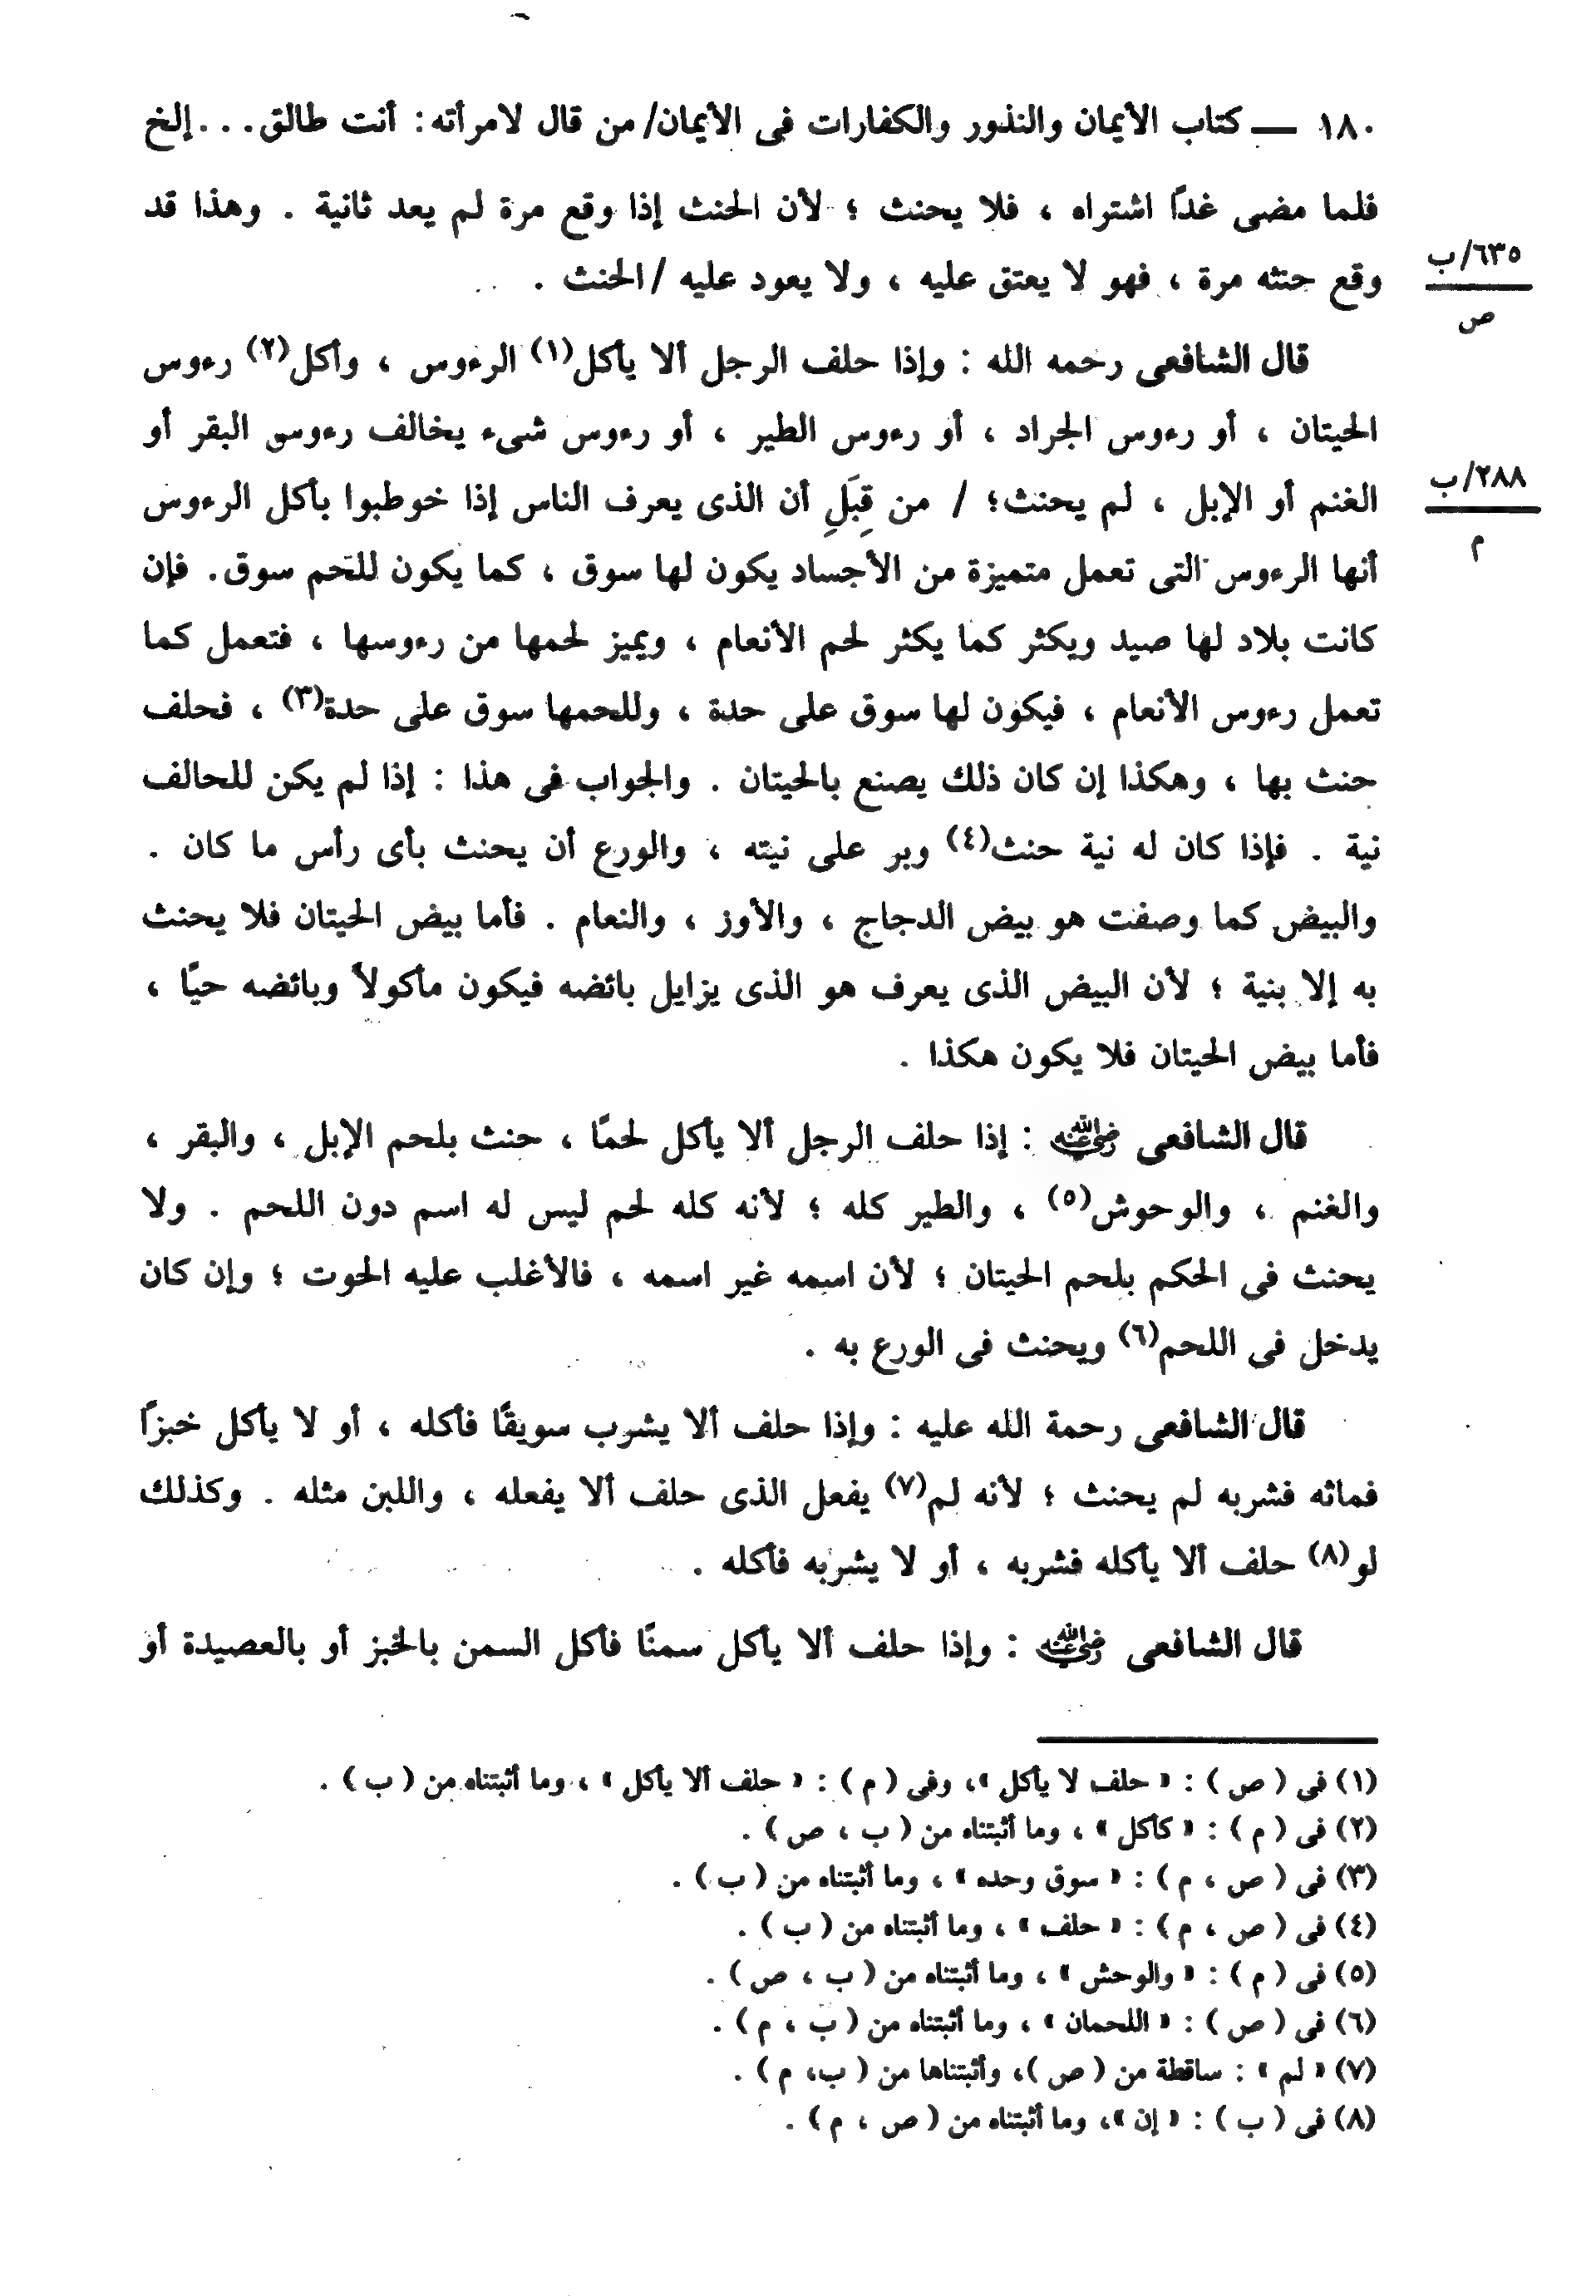 ١٨٠ ــ كتاب الأيمان والنذور والكفارات فى الأيمان/ من قال لامرأته: أنت طالق. . .إلخ
فلما مضى غدًا اشتراه ، فلا يحنث ؛ لأن الحنث إذا وقع مرة لم يعد ثانية . وهذا قد
٦٣٥/ب
وقع حنثه مرة ، فهو لا يعتق عليه ، ولا يعود عليه /الحنث .
ص
قال الشافعى رحمه الله : وإذا حلف الرجل ألا يأكل(١) الرءوس ، وأكل(٢) رءوس
الحيتان ، أو رءوس الجراد ، أو رءوس الطير ، أو رءوس شىء يخالف رءوس البقر أو
٢٨٨/ب
الغنم أو الإبل ، لم يحنث؛ / من قِبَلِ أن الذى يعرف الناس إذا خوطبوا بأكل الرءوس
م
أنها الرءوس التى تعمل متميزة من الأجساد يكون لها سوق ، كما يكون للحم سوق. فإن
كانت بلاد لها صيد ويكثر كما يكثر لحم الأنعام ، ويميز لحمها من رءوسها ، فتعمل كما
تعمل رءوس الأنعام ، فيكون لها سوق على حدة ، وللحمها سوق على حدة(٣) ، فحلف
حنث بها ، وهكذا إن كان ذلك يصنع بالحيتان . والجواب فى هذا : إذا لم يكن للحالف
نية . فإذا كان له نية حنث(٤) وبر على نيته ، والورع أن يحنث بأى رأس ما كان .
والبيض كما وصفت هو بيض الدجاج ، والأوز ، والنعام . فأما بيض الحيتان فلا يحنث
به إلا بنية ؛ لأن البيض الذى يعرف هو الذى يزايل بائضه فيكون مأكولاً وبائضه حيًا ،
فأما بيض الحيتان فلا يكون هكذا .
قال الشافعى رضي الله عنه : إذا حلف الرجل ألا يأكل لحمًا ، حنث بلحم الإبل ، والبقر ،
والغنم ، والوحوش(٥) ، والطير كله ؛ لأنه كله لحم ليس له اسم دون اللحم . ولا
يحنث فى الحكم بلحم الحيتان ؛ لأن اسمه غير اسمه ، فالأغلب عليه الحوت ؛ وإن كان
يدخل فى اللحم(٦) ويحنث فى الورع به .
قال الشافعى رحمة الله عليه : وإذا حلف ألا يشرب سويقًا فأكله ، أو لا يأكل خبزًا
فماثه فشربه لم يحنث ؛ لأنه لم(٧) يفعل الذى حلف ألا يفعله ، واللبن مثله . وكذلك
لو(٨) حلف ألا يأكله فشربه ، أو لا يشربه فأكله .
قال الشافعى رضي الله عنه : وإذا حلف ألا يأكل سمنًا فأكل السمن بالخبز أو بالعصيدة أو
(١) فى ( ص ) : « حلف لا يأكل »، وفى ( م ) : « حلف ألا يأكل » ، وما أثبتناه من ( ب ) .
(٢) فى ( م ) : « كأكل » ، وما أثبتناه من ( ب ، ص ) .
(٣) فى ( ص ، م ) : « سوق وحده » ، وما أثبتناه من ( ب ) .
(٤) فى ( ص ، م ) : « حلف » ، وما أثبتناه من ( ب ) .
(٥) فى ( م ) : « والوحش » ، وما أثبتناه من ( ب ، ص ) .
(٦) فى ( ص ) : « اللحمان » ، وما أثبتناه من ( ب ، م ) .
(٧) « لم » : ساقطة من ( ص )، وأثبتناها من ( ب، م ) .
(٨) فى ( ب ) : « إن »، وما أثبتناه من ( ص ، م ) .